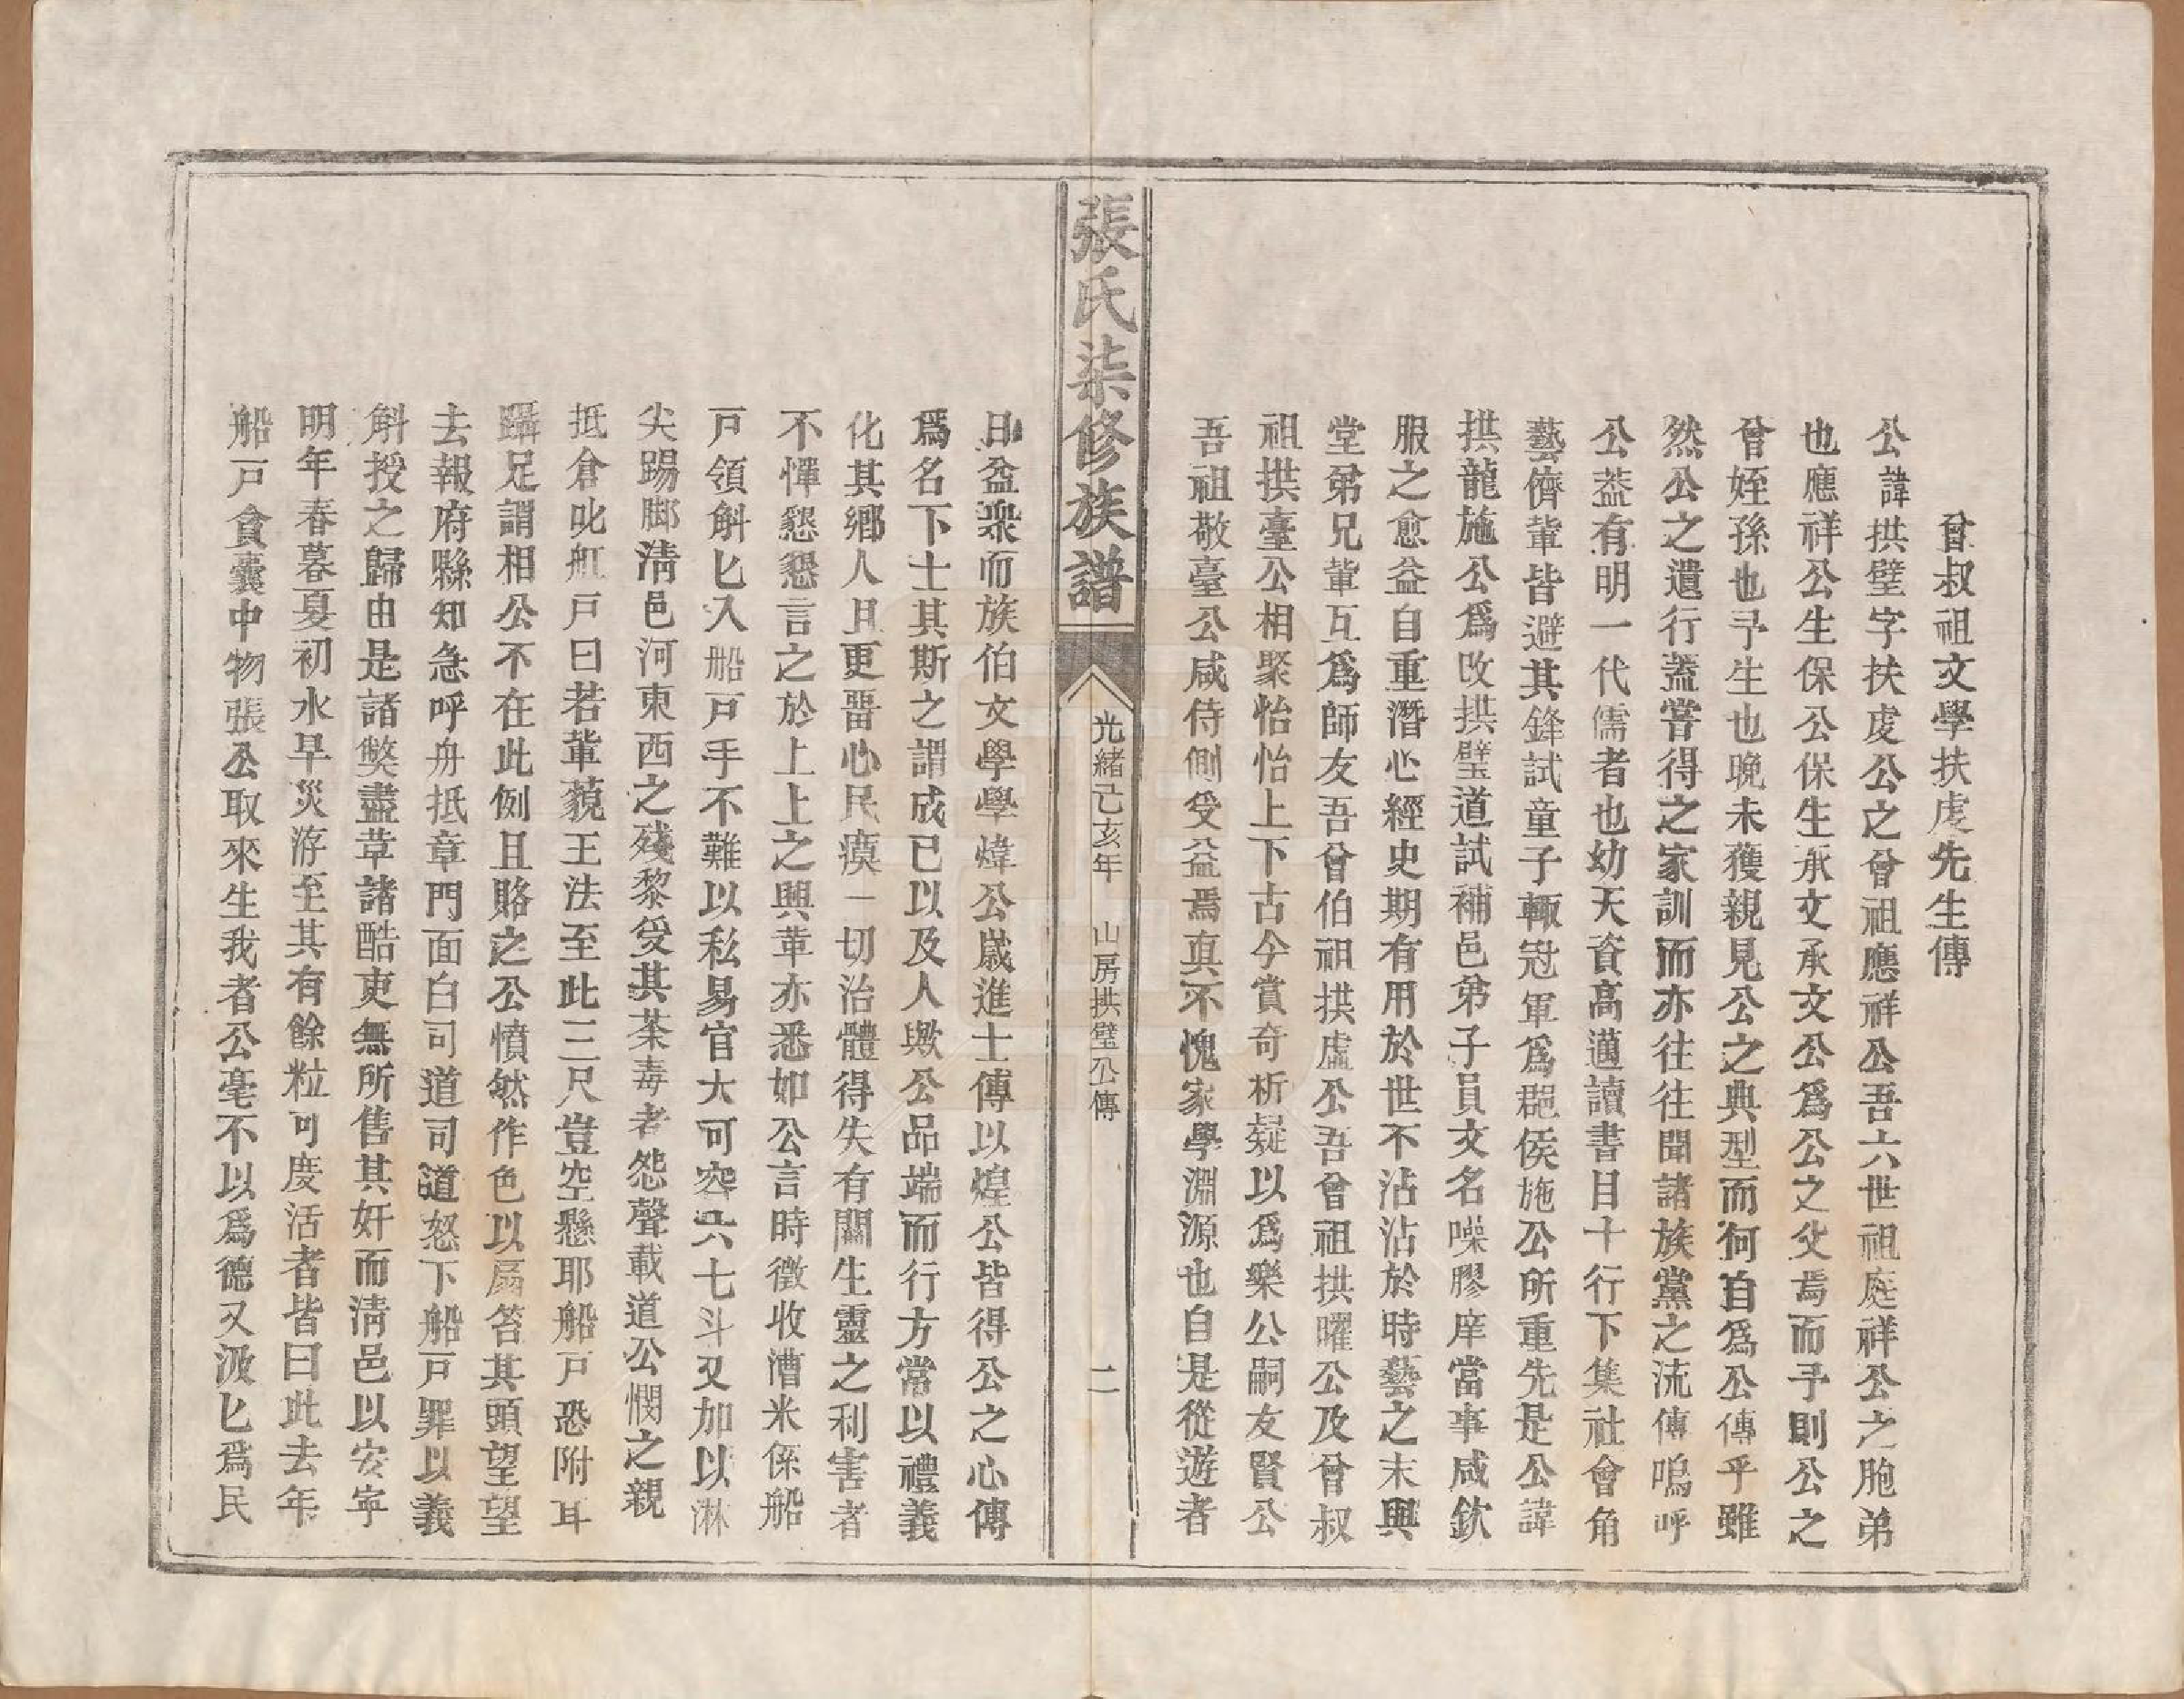 曾叔祖文學扶虔先生傳
公諱拱璧字扶虔公之曾祖應祥公吾六世祖庭祥公之胞弟
也應祥公生保公保生承文承文公為公之父焉而予則公之
曾姪孫也予生也晚未獲親見公之典型而何自為公傳乎雖
然公之遺行蓋嘗得之家訓而亦往往聞諸族黨之流傳嗚呼
公葢有明一代儒者也幼天資高邁讀書目十行下集社會角
藝儕輩皆避其鋒試童子輙冠軍為邑侯施公所重先是公諱
拱龍施公為改拱璧道試補邑弟子員文名噪膠庠當事咸欽
服之愈益自重潛心經史期有用於世不沾沾於時藝之末與
堂弟兄輩互為師友吾曾伯祖拱虛公吾曾祖拱曜公及曾叔
祖拱臺公相聚怡怡上下古今賞奇析疑以為樂公嗣友賢公
吾祖敬臺公咸侍側受益焉真不愧家學淵源也自是從遊者
張氏柒修族譜
光緒己亥年
山房拱璧公傳
二
日益眾而族伯文學學煒公歲進士傳以煌公皆得公之心傳
為名下士其斯之謂成已以及人歟公品端而行方常以禮義
化其鄉人且更畱心民瘼一切治體得失有關生靈之利害者
不憚懇懇言之於上上之興革亦悉如公言時徵收漕米係船
戸領斛匕入船戸手不難以私易官大可容六七斗又加以淋
尖踢脚淸邑河東西之殘黎受其荼毒者怨聲載道公憫之親
抵倉叱舡戸曰若輩藐王法至此三尺豈空懸耶船戸恐附耳
躡足謂相公不在此例且賂之公憤然作色以扇笞其頭望望
去報府縣知急呼舟抵章門面白司道司道怒下船戸罪以義
斛授之歸由是諸獘盡革諸酷吏無所售其奸而淸邑以安寕
明年春暮夏初水旱災洊至其有餘粒可度活者皆曰此去年
船戸貪囊中物張公取來生我者公毫不以為德又汲匕為民